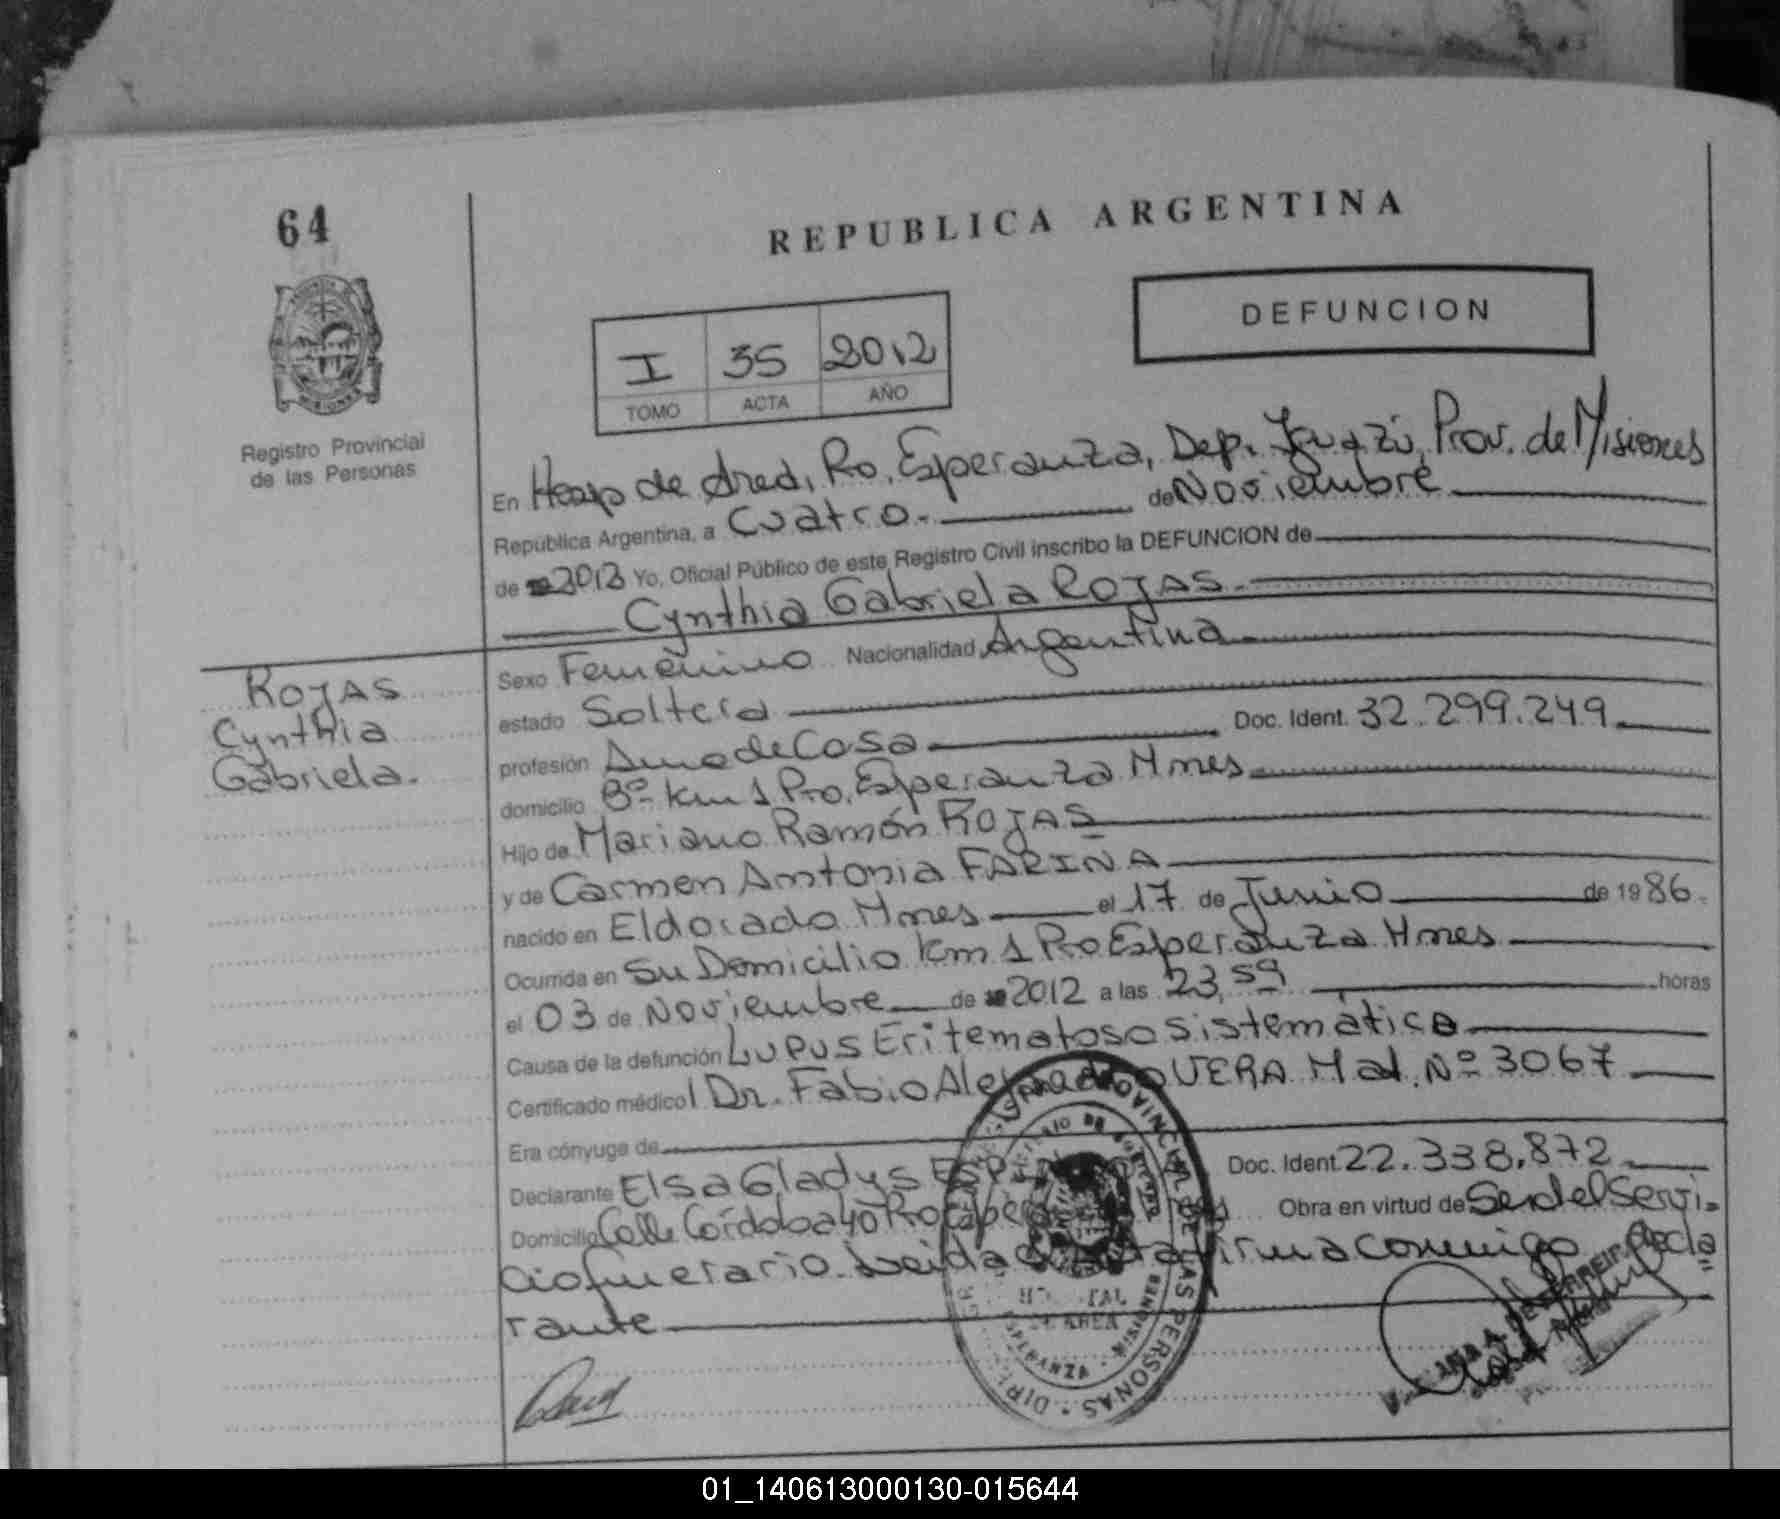 64
REPUBLICA ARGENTINA
DEFUNCION
I 35 2012
TOMO ACTA AÑO
Registro Provincial
de las Personas
En Hosp de Area, Pto. Esperanza, Dep. Iguazú, Prov. de Misiones
República Argentina, a Cuatro.- de Noviembre
de 2012 Yo, Oficial Público de este Registro Civil inscribo la DEFUNCION de
Cynthia Gabriela ROJAS.
ROJAS
Cynthia
Gabriela.
Sexo Femenino Nacionalidad Argentina
estado Soltera
profesión Ama de Casa Doc. Ident. 32.299.249
domicilio Bº km 1 Pto. Esperanza Mnes
Hijo de Mariano Ramón ROJAS
y de Carmen Antonia FARINA
nacido en Eldorado Mnes el 17 de Junio de 1986.
Ocurrida en Su Domicilio km 1 Pto Esperanza Mnes
el 03 de Noviembre de 2012 a las 23,59 horas
Causa de la defunción Lupus Eritematoso sistemático
Certificado médico Dr. Fabio Alejandro VERA Mat. Nº 3067
Era cónyuge de
Declarante Elsa Gladys Doc. Ident. 22.338.872
Domicilio Calle Córdoba 40 Pto Esperanza Obra en virtud de Ser del Servi-
cio funerario. Leida el Acta firma conmigo Decla
rante
DE LAS PERSONAS
HOSPITAL
DE AREA
ESPERANZA - MISIONES
01_140613000130-015644